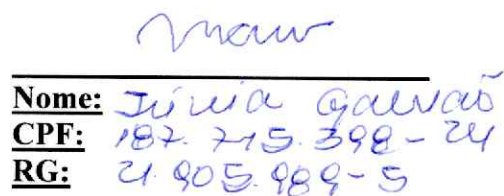 Nome: Júnia Galvão
CPF: 187.715.398-24
RG: 21.905.989-5